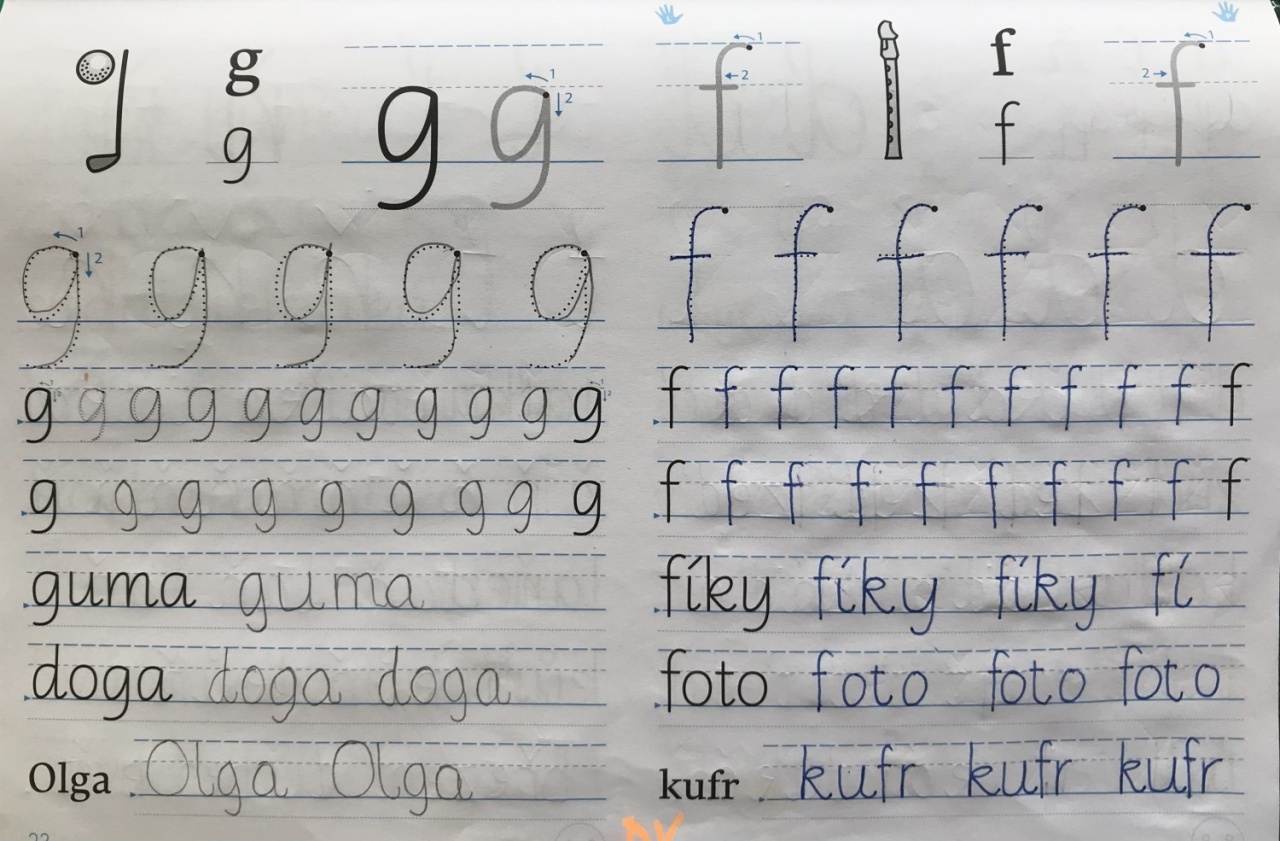 g
g
g g 1 2
g g g g g 1 2
g g g g g g g g g g g
g g g g g g g g g
guma guma
doga doga doga
Olga Olga Olga
f 1 2
f
f
f 1 2
f f f f f f
f f f f f f f f f f f
f f f f f f f f f f
fíky fíky fíky fí
foto foto foto foto
kufr kufr kufr kufr